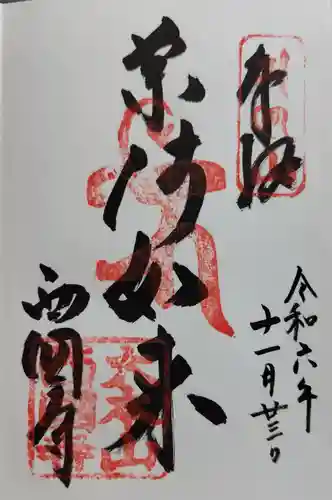 奉拝
令和六年
十一月廿三日
薬師如来
西國寺